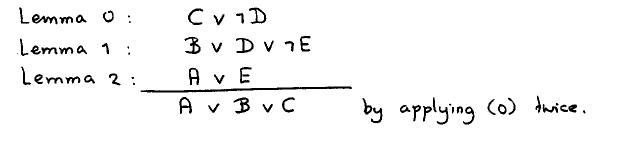 Lemma 0 : C ∨ ¬D
Lemma 1 : B ∨ D ∨ ¬E
Lemma 2 : A ∨ E
A ∨ B ∨ C by applying (0) twice.